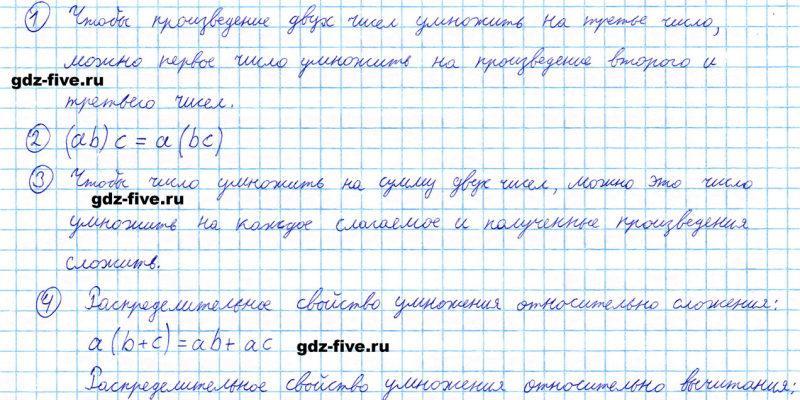 1 Чтобы произведение двух чисел умножить на третье число,
можно первое число умножить на произведение второго и
gdz-five.ru
третьего чисел.
2 (ab) c = a (bc)
3 Чтобы число умножить на сумму двух чисел, можно это число
gdz-five.ru
умножить на каждое слагаемое и полученные произведения
сложить.
4 Распределительное свойство умножения относительно сложения:
a (b+c) = ab + ac gdz-five.ru
Распределительное свойство умножения относительно вычитания: